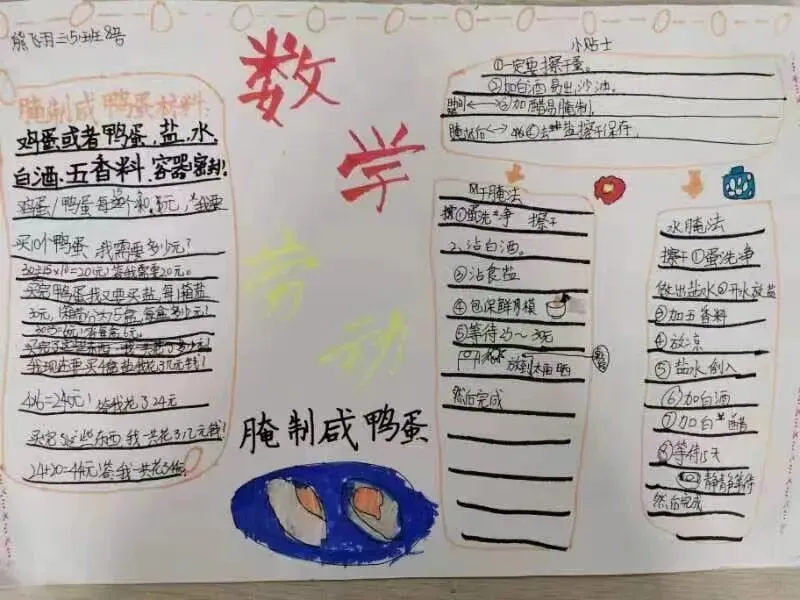 熊飞羽三(5)班8号
数学
劳动
腌制咸鸭蛋
腌制咸鸭蛋材料
鸡蛋或者鸭蛋、盐、水、
白酒、五香料、容器密封!
买10个鸭蛋,我需要多少元?
30÷15×10=20(元)答:我需要20元。
买完鸭蛋我又要买盐,每1箱盐
30元,
30÷5=6(元)
我现还要买4盒盐我花了几元钱!
4×6=24(元)! 答我花了24元
买完了这些东西我一共花了几元钱!
24+20=44(元)!答:我一共花了44元
小贴士
①一定要擦干蛋。
②加白酒易出沙油。
③加醋易腌制。
擦干保存。
风干腌法
①蛋洗干净 擦干
2、沾白酒。
③沾食盐
④包保鲜月模
⑤等待2~3天
放到太阳晒
然后完成
水腌法
擦干①蛋洗净
做出盐水②开水放盐
③加五香料
④放凉
⑤盐水倒入
⑥加白酒
⑦加白醋
静静等待
然后完成